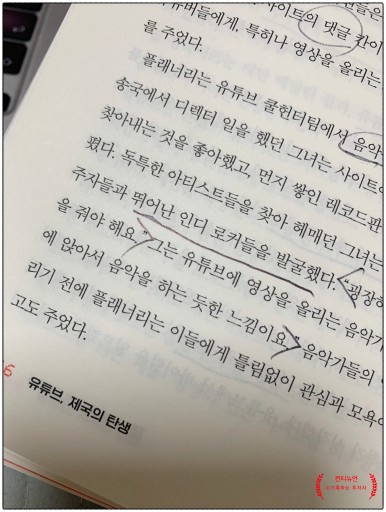 사이트의 댓글 칸이
유버들에게, 특히나 영상을 올리는
를 주었다.
플래너리는 유튜브 쿨헌터팀에서 음악
송국에서 디렉터 일을 했던 그녀는 사이트에
찾아내는 것을 좋아했고, 먼저 쌓인 레코드판
폈다. 독특한 아티스트들을 찾아 헤매던 그녀는
주자들과 뛰어난 인디 로커들을 발굴했다. "굉장히
을 줘야 해요." 그는 유튜브에 영상을 올리는 음악가
에 앉아서 음악을 하는 듯한 느낌이요." 음악가들의
리기 전에 플래너리는 이들에게 틀림없이 관심과 모욕이
고도 주었다.
유튜브, 제국의 탄생
컨티뉴언